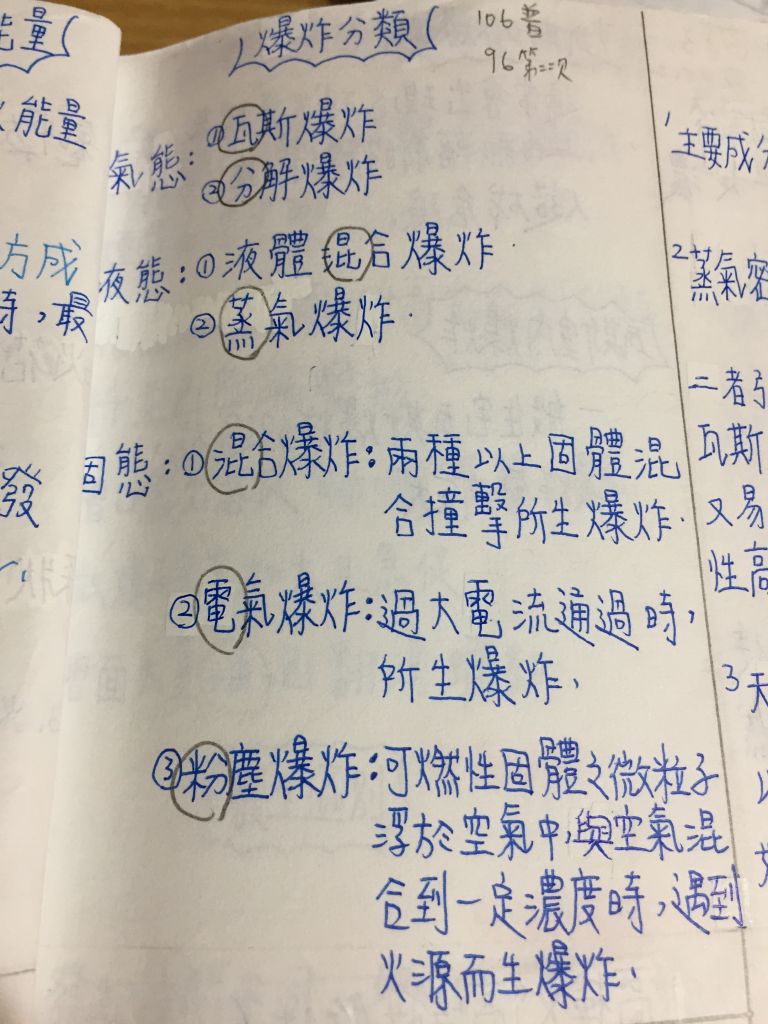 能量
能量
方成
時,最
發
爆炸分類
106普
96第二次
氣態:①瓦斯爆炸
②分解爆炸
液態:①液體混合爆炸.
②蒸氣爆炸.
固態:①混合爆炸:兩種以上固體混
合撞擊所生爆炸.
②電氣爆炸:過大電流通過時,
所生爆炸.
③粉塵爆炸:可燃性固體之微粒子
浮於空氣中,與空氣混
合到一定濃度時,遇到
火源而生爆炸.
1主要成分
2蒸氣密
二者引
瓦斯
又易
性高
3天